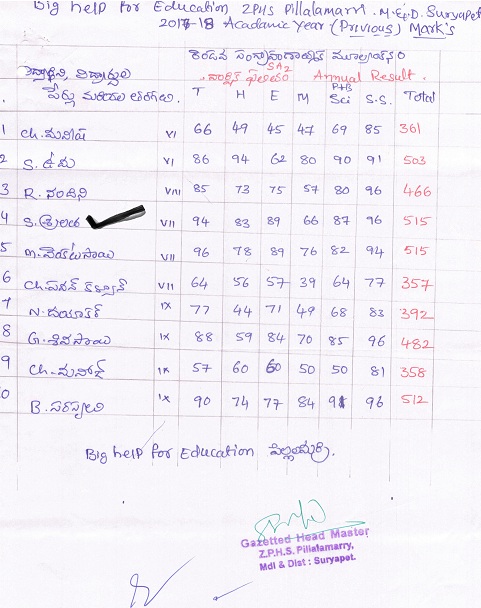 Big help for Education ZPHS Pillalamarri. M.&.D. Suryapet
2017-18 Acadamic Year (Previous) Mark's
SA2
Annual Result.
T H E M P+B Sci S.S. Total
1 Ch. మనీష VI 66 49 45 47 69 85 361
2 S. ఉమ VI 86 94 62 80 90 91 503
3 R. నందిని VIII 85 73 75 57 80 96 466
4 S. శ్రీలత VII 94 83 89 66 87 96 515
5 VII 96 78 89 76 82 94 515
6 Ch. పవన్ కళ్యాణ్ VII 64 56 57 39 64 77 357
7 N. దయాకర్ IX 77 44 71 49 68 83 392
8 G. శివసాయి IX 88 59 84 70 85 96 482
9 Ch. మనోజ్ IX 57 60 60 50 50 81 358
10 B. IX 90 74 77 84 91 96 512
Big help for Education పిల్లలమర్రి.
Gazetted Head Master
Z.P.H.S. Pillalamarry,
Mdl & Dist : Suryapet.